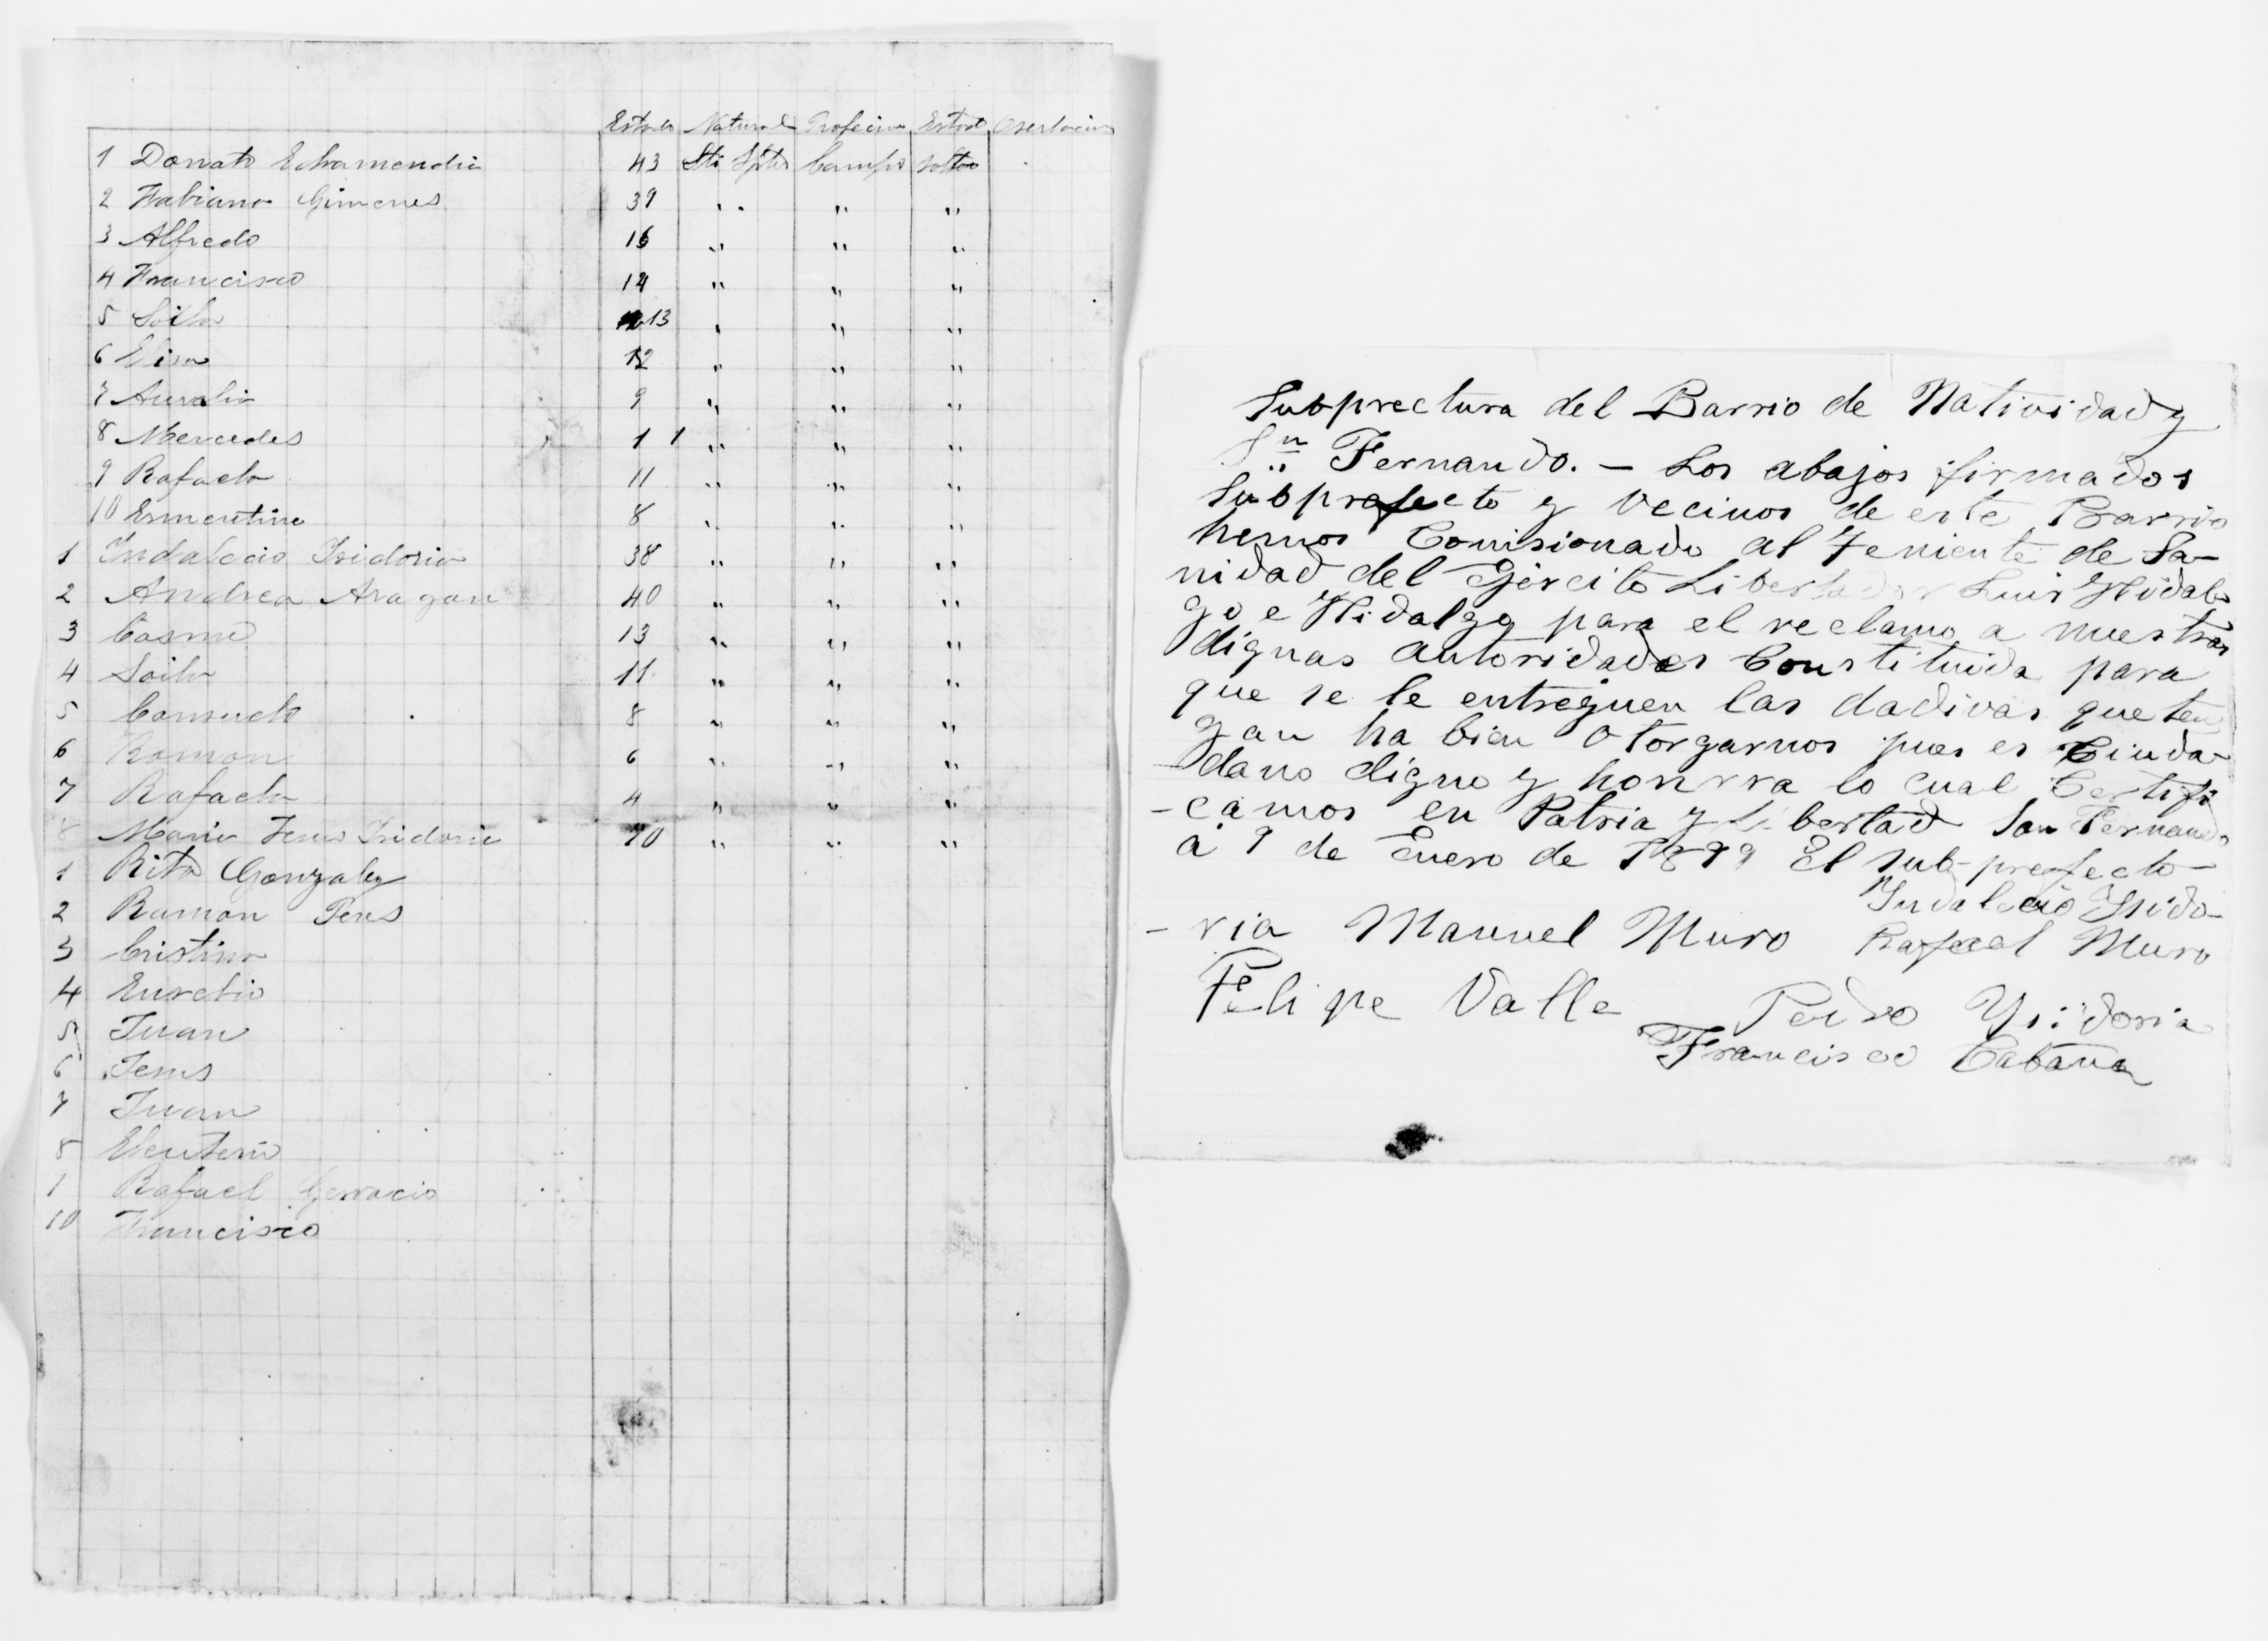 Estado Natural Profecion Estado Oserbacion
1 Donato Echamendia 43 Sti Sptus Campo soltero
2 Fabiano Gimenes 39 " " "
3 Alfredo 16 " " "
4 Francisco 14 " " "
5 Soila 13 " " "
6 Elisa 12 " " "
7 Aurelia 9 " " "
8 Mercedes 11 " " "
9 Rafaela 11 " " "
10 Ermentina 8 " " "
1 Indalecio Isidoria 38 " " "
2 Andrea Aragon 40 " " "
3 Cosme 13 " " "
4 Soila 11 " " "
5 Consuelo 8 " " "
6 Ramon 6 " " "
7 Rafaela 4 " " "
8 Maria Jesus Isidoria 70 " " "
1 Rita Gonzalez
2 Ramon Peres
3 Cristina
4 Eusebio
5 Juan
6 Jesus
7 Juan
8 Eleuterio
1 Rafael Gervacio
10 Francisco
Subprectura del Barrio de Natividad y
Sn Fernando. — Los abajos firmados
Subprefecto y Vecinos de este Barrio
hemos Comisionado al Teniente de Sa-
nidad del Ejercito Libertador Luis Hidal
go e Hidalgo para el reclamo a nuestras
dignas autoridades Constituida para
que se le entreguen las dadivas que ten
gan ha bien Otorgarnos pues es Ciuda-
dano digno y honrra lo cual Certifi
-camos en Patria y Libertad San Fernando
á 9 de Enero de 1899 El sub-prefecto-
Indalecio Isido-
-ria Manuel Muro Rafael Muro
Felipe Valle Pedro Ysidoria
Francisco Cabana